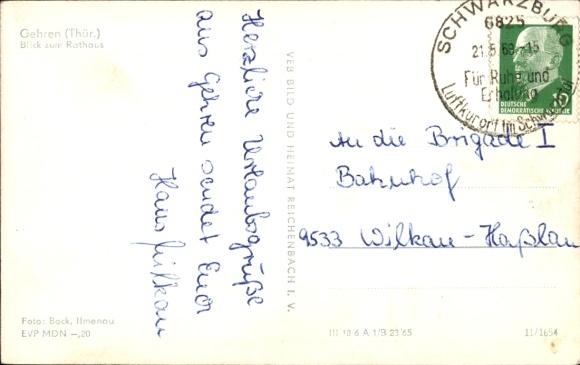 Gehren (Thür.)
Blick zum Rathaus
Herzliche Urlaubsgrüße
aus Gehren sendet Euch
Hans
VEB BILD UND HEIMAT REICHENBACH I. V.
SCHWARZBURG
6825
21.5.68-15
Für Ruhe und
Erholung
Luftkurort im Schwarzatal
15
DEUTSCHE
DEMOKRATISCHE REPUBLIK
An die Brigade I
Bahnhof
9533 Wilkau-Haßlau
Foto: Bock, Ilmenau
EVP MDN -,20
III 18 6 A 1/B 23 65
11/1654